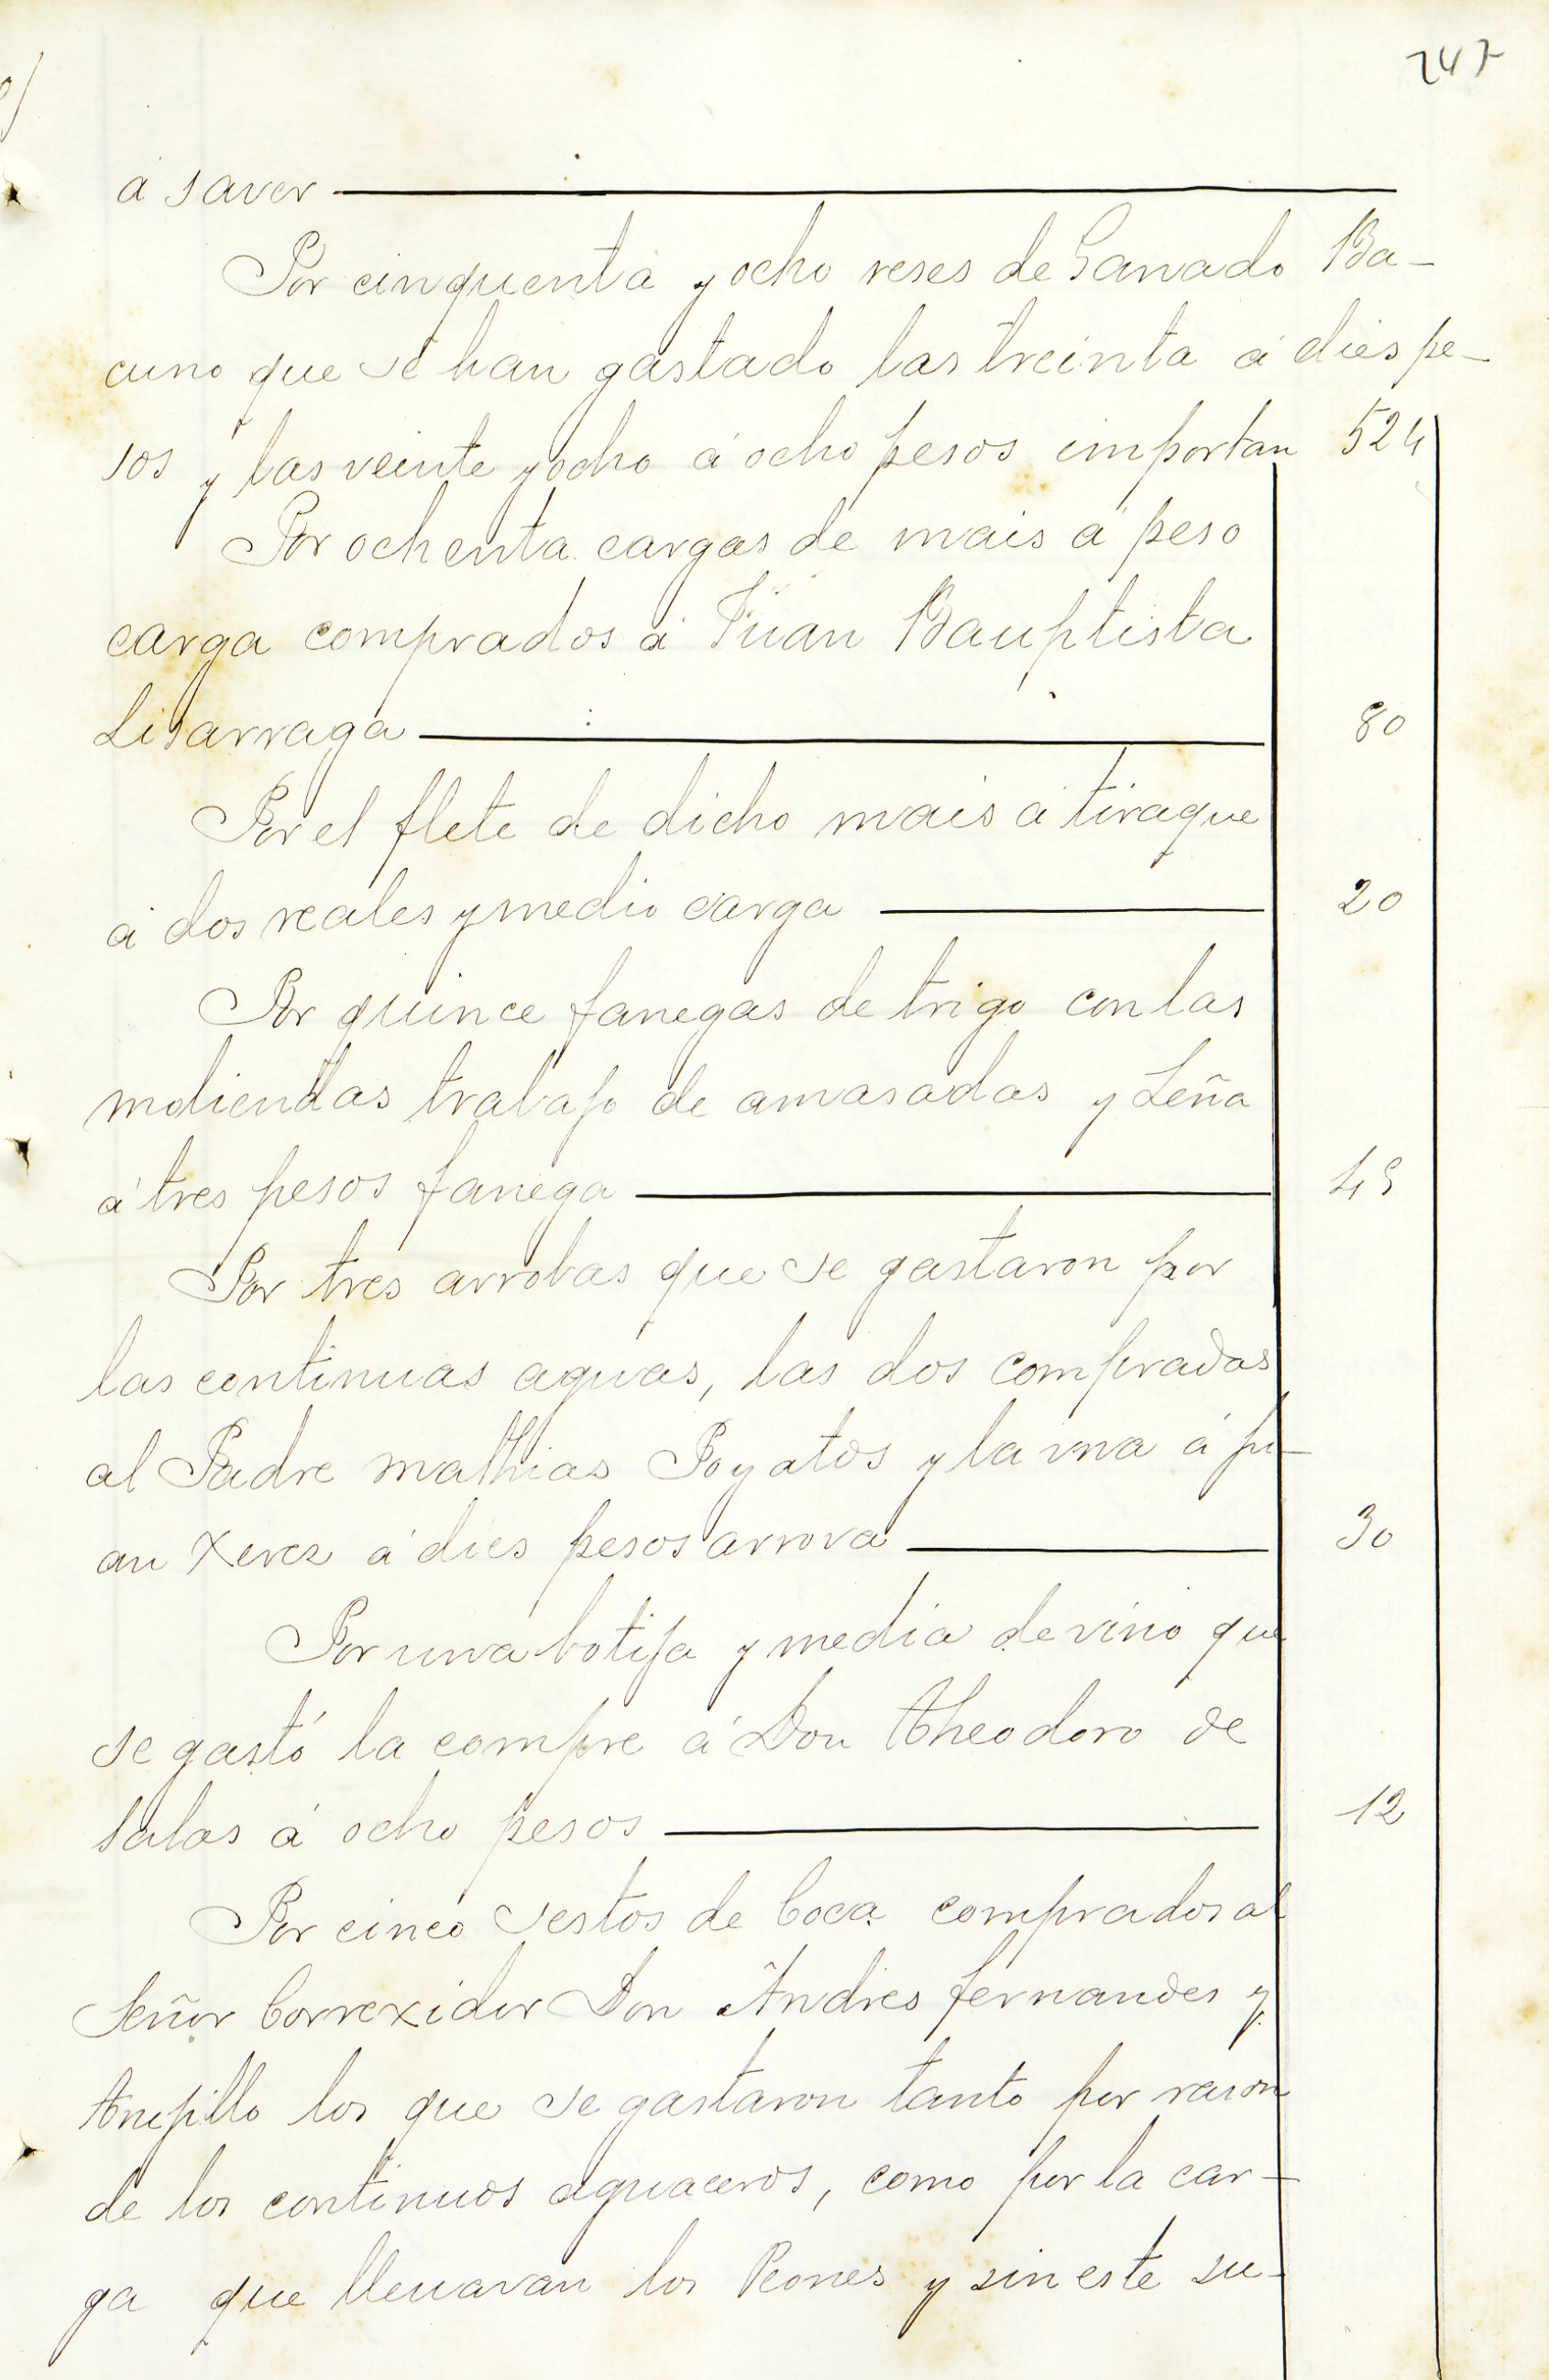 247
á saver
Por cinquenta y ocho reses de Ganado Ba-
cuno que se han gastado las treinta á dies pe-
sos y las veinte y ocho á ocho pesos importan 524
Por ochenta cargas de mais á peso
carga comprados á Juan Bauptista
Lisarraga 80
Por el flete de dicho mais á tiraque
á dos reales y medio carga 20
Por quince fanegas de trigo con las
moliendas trabajo de amasadas y Leña
á tres pesos fanega 45
Por tres arrobas que se gastaron por
las continuas aguas, las dos compradas
al Padre Mathias Poyatos y la una á ju-
an Xerez á dies pesos arrova 30
Por una botija y media de vino que
se gastó la compre á Don Theodoro de
salas á ocho pesos 12
Por cinco sestos de Coca comprados al
Señor Correxidor Don Andres fernandes y
los que se gastaron tanto por rason
de los continuos aguaceros, como por la car-
ga que lleuavan los Peones y sin este su-